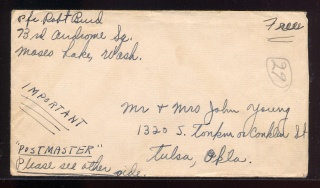 Pfc Robt Burd
73rd Airdrome Sq.
Moses Lake, Wash.
Free
22
IMPORTANT
Mr & Mrs John Young
1320 S. or Conklin St
Tulsa, Okla.
"POSTMASTER"
Please see other side.